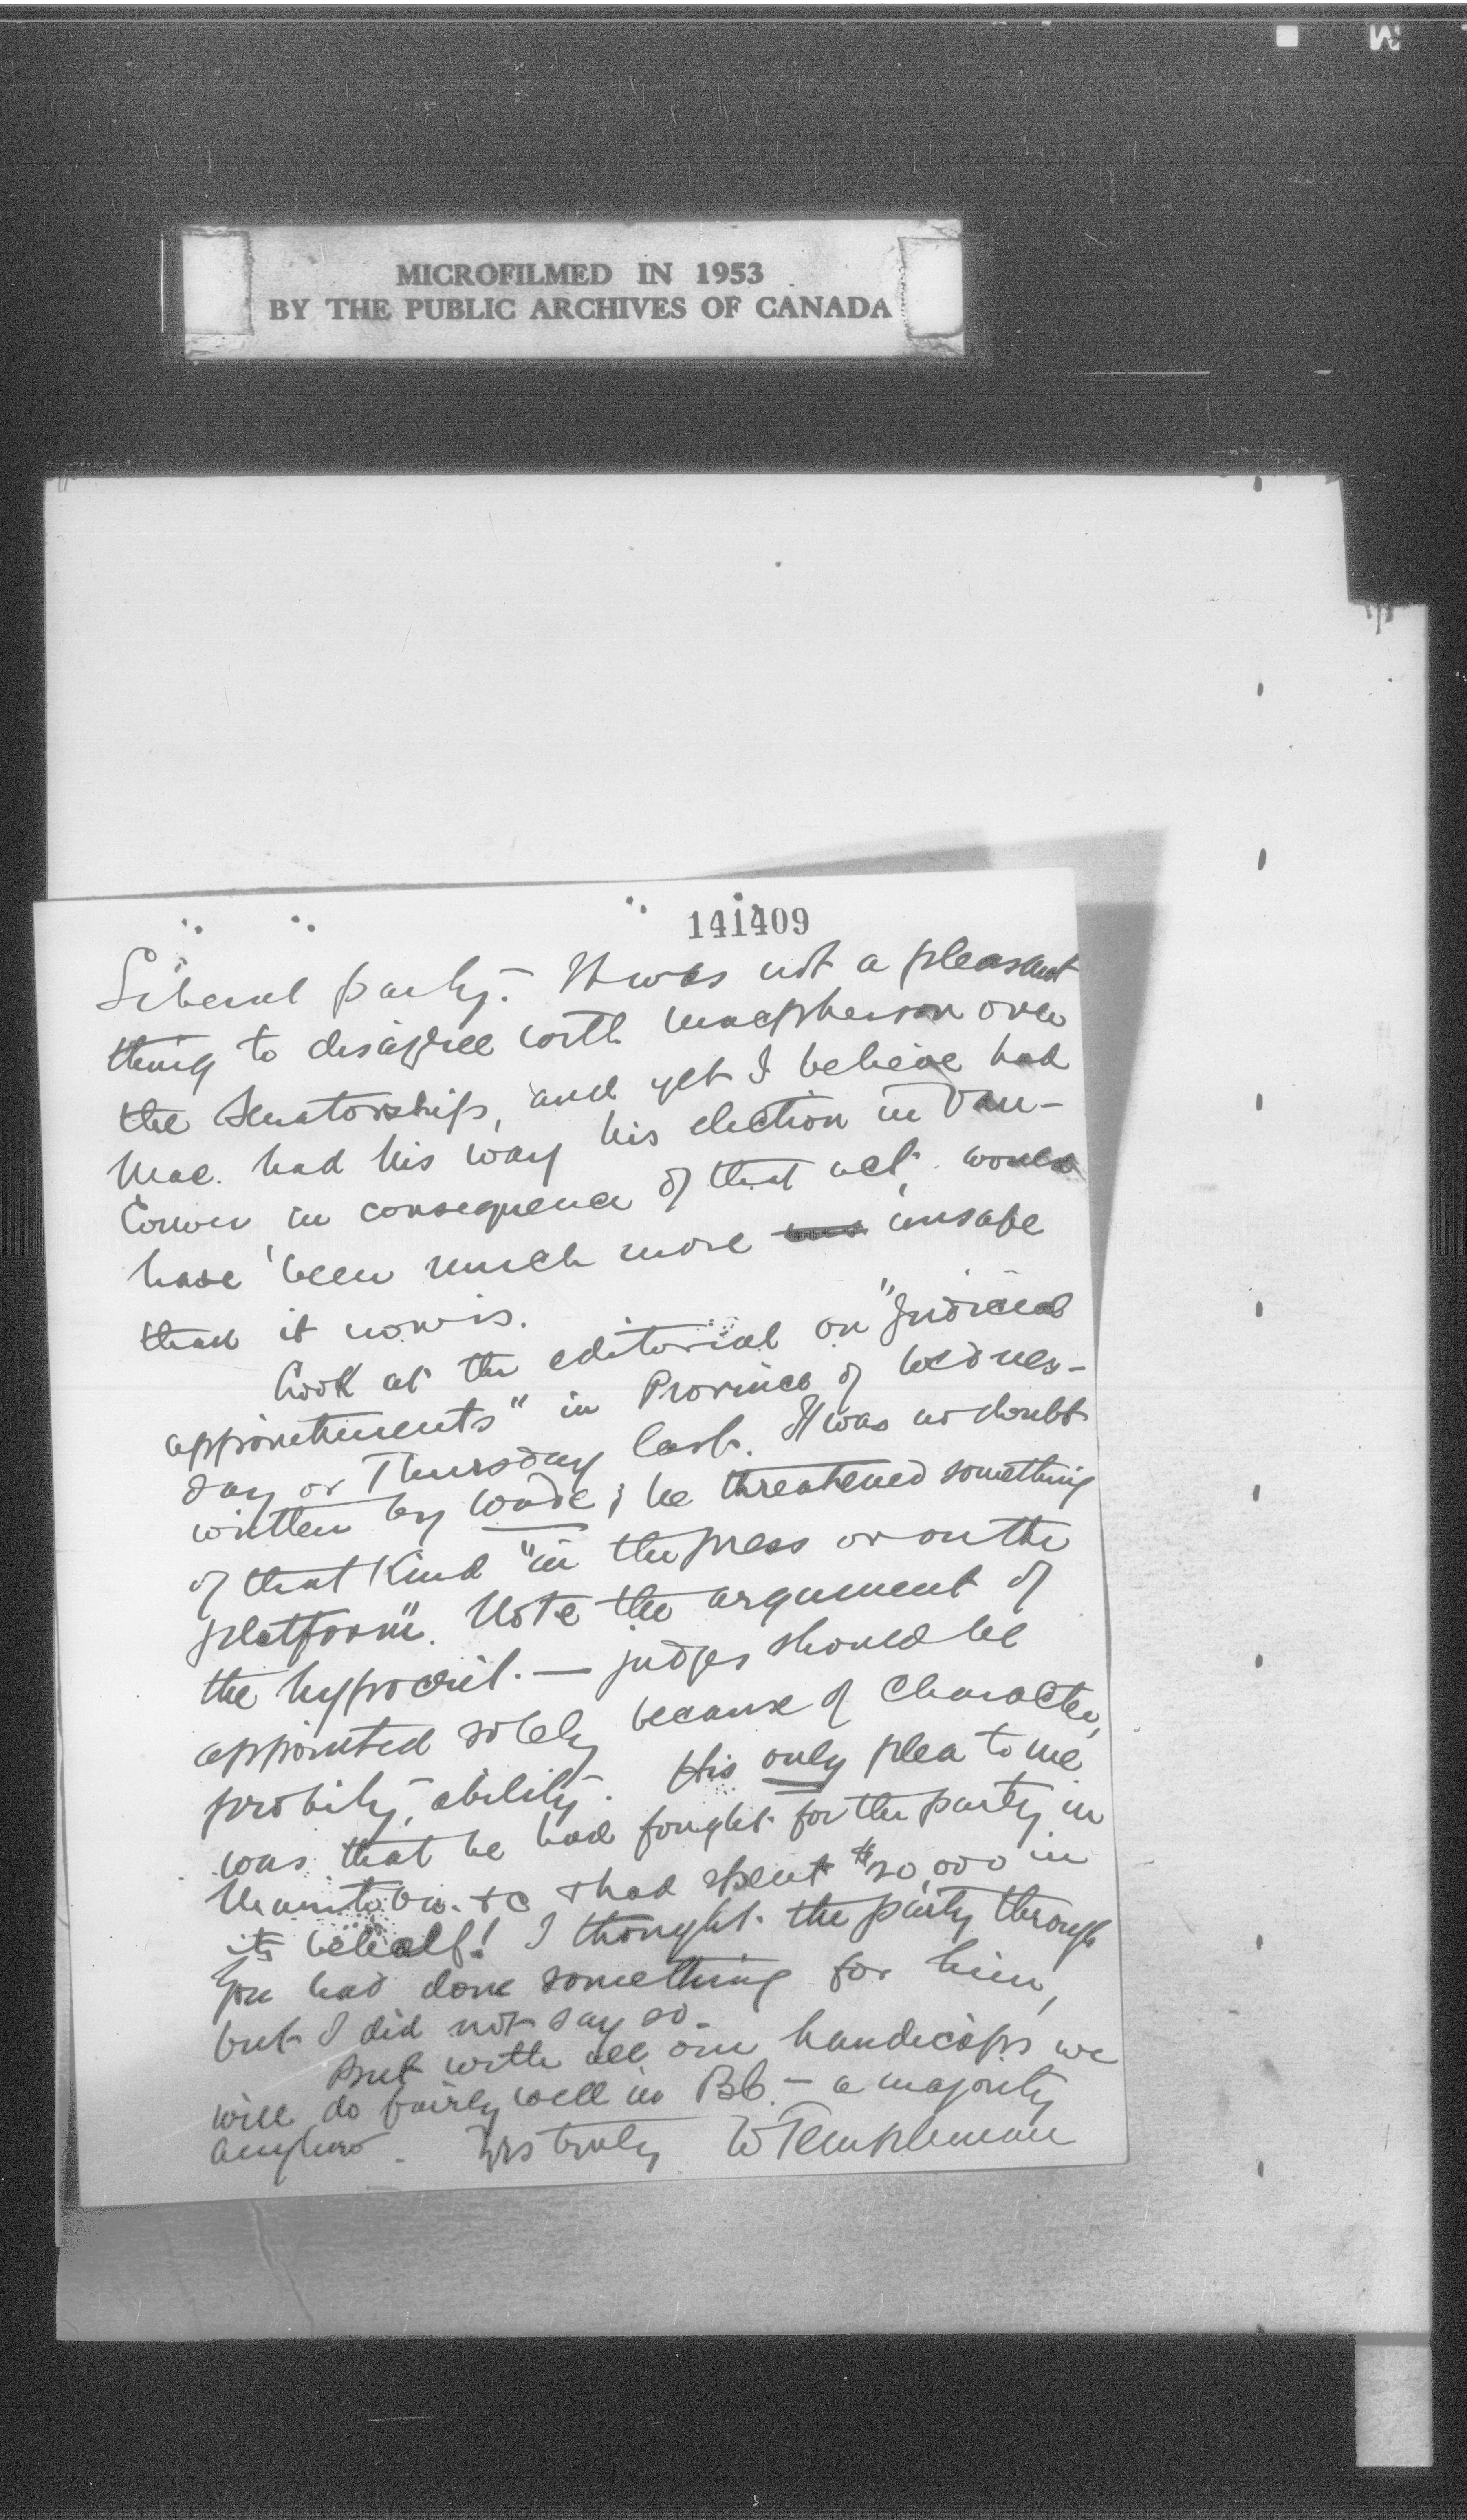 MICROFILMED IN 1953
BY THE PUBLIC ARCHIVES OF CANADA
141409
Liberal party. It was not a pleasant
thing to disagree with Macpherson over
the Senatorship, and yet I believe had
Mac. had his way his election in Van-
couver, in consequence of that act, would
have been much more unsafe
than it now is.
Look at the editorial on "Judicial
appointments" in Province of Wednes-
day or Thursday last. It was no doubt
written by Wade; he threatened something
of that kind "in the press or on the
platform". Note the argument of
the hypocrit. — judges should be
appointed solely because of character,
probity, ability. His only plea to me
was that he had fought for the party in
Manitoba &c & had spent $20,000 in
its behalf! I thought the party through
you had done something for him,
but I did not say so.
But with all our handicaps we
will do fairly well in BC. — a majority
anyhow. Yrs truly W Templeman